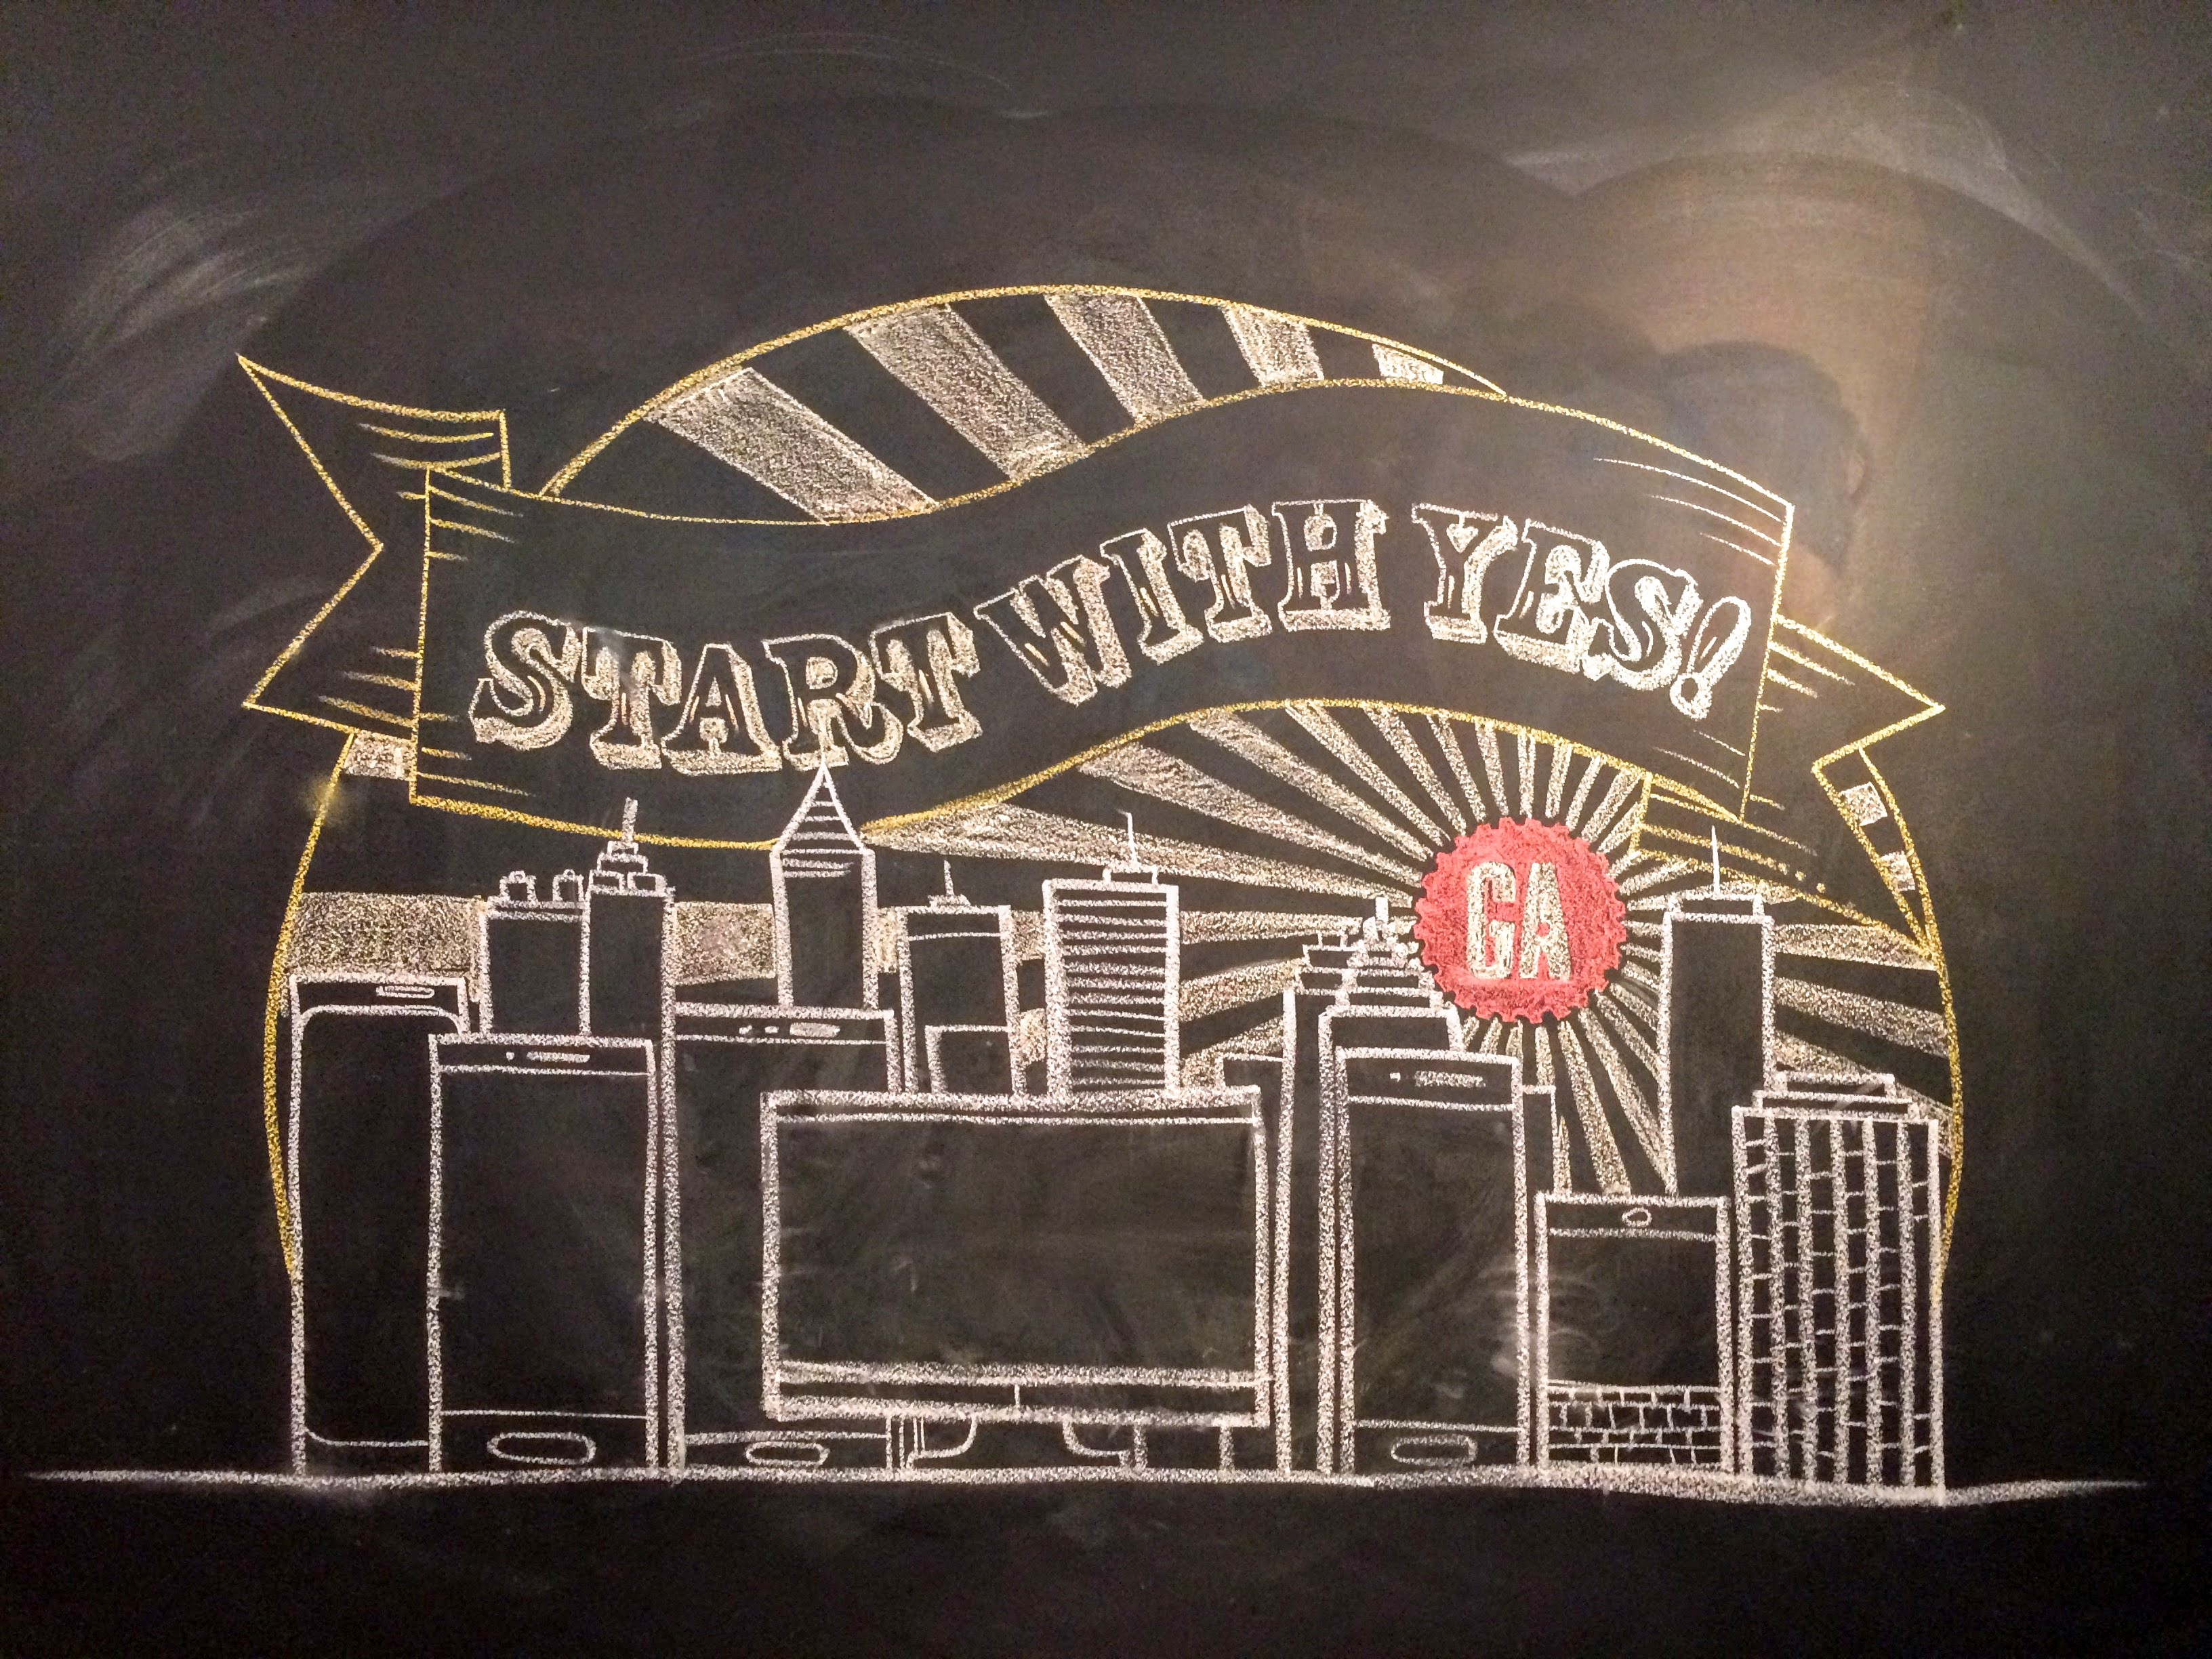 START WITH YES!
GA